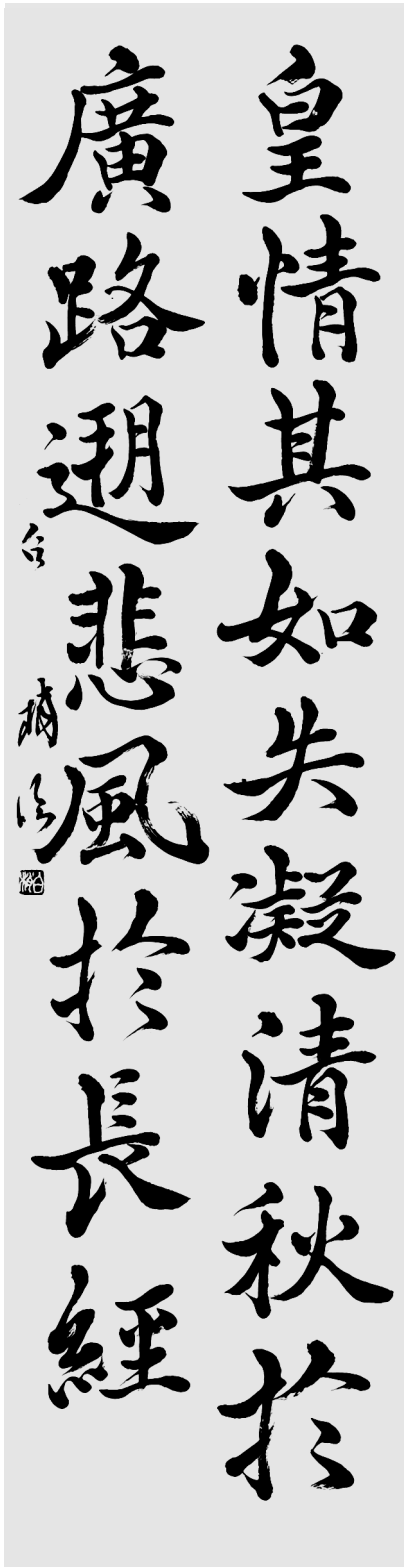 皇情其如失凝清秋於
廣路遡悲風於長經